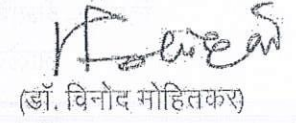 (डॉ. विनोद मोहितकर)